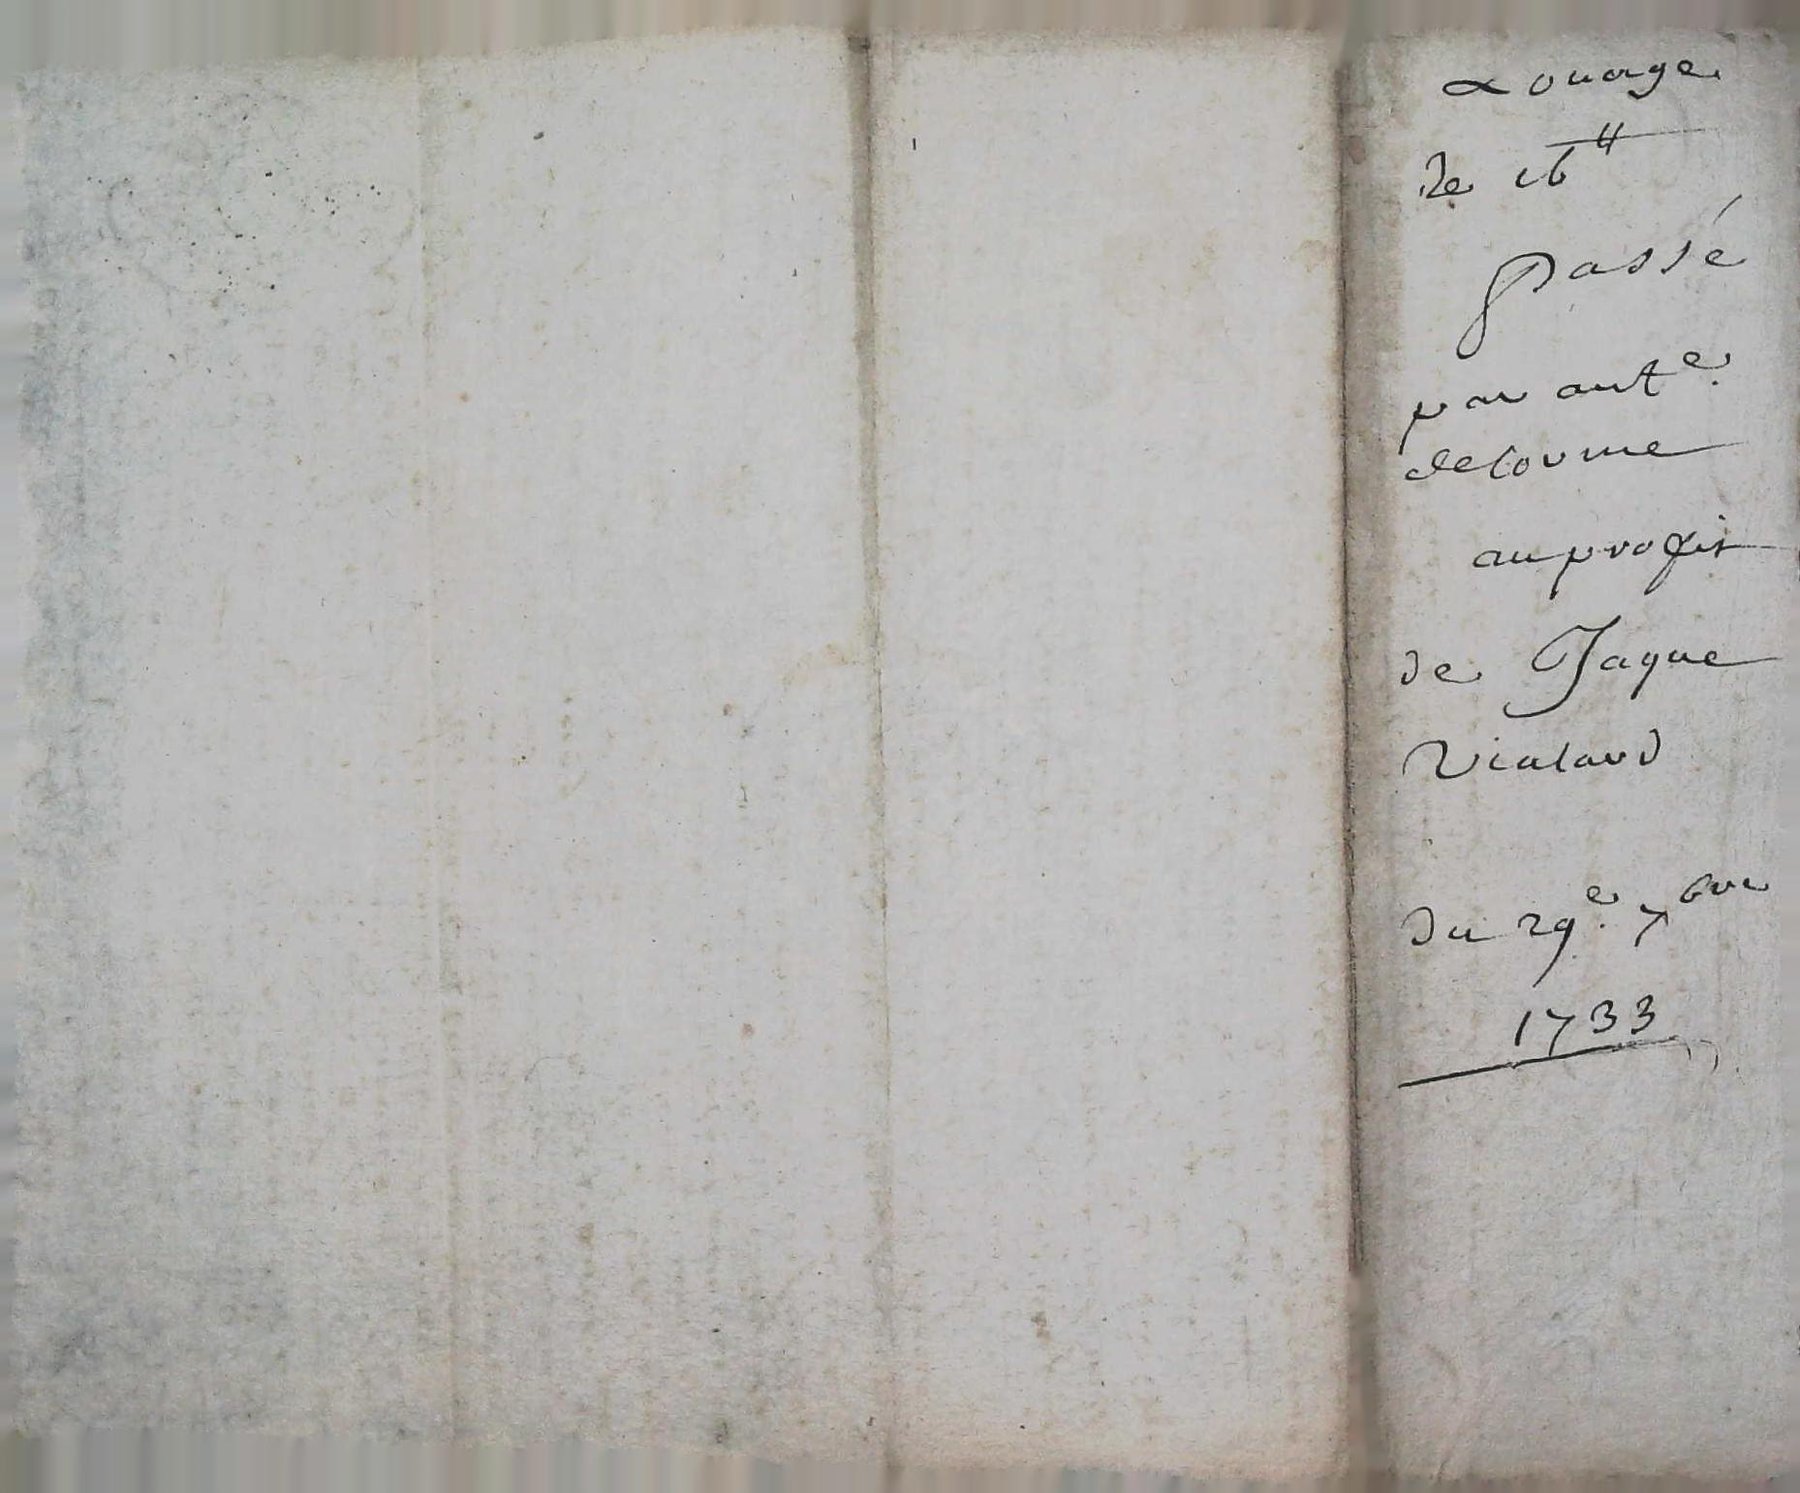 Louage
de 16 ₶
Passé
par ant.e
delorme
au profit
de Jaque
Vialard
du 29.e 7bre
1733